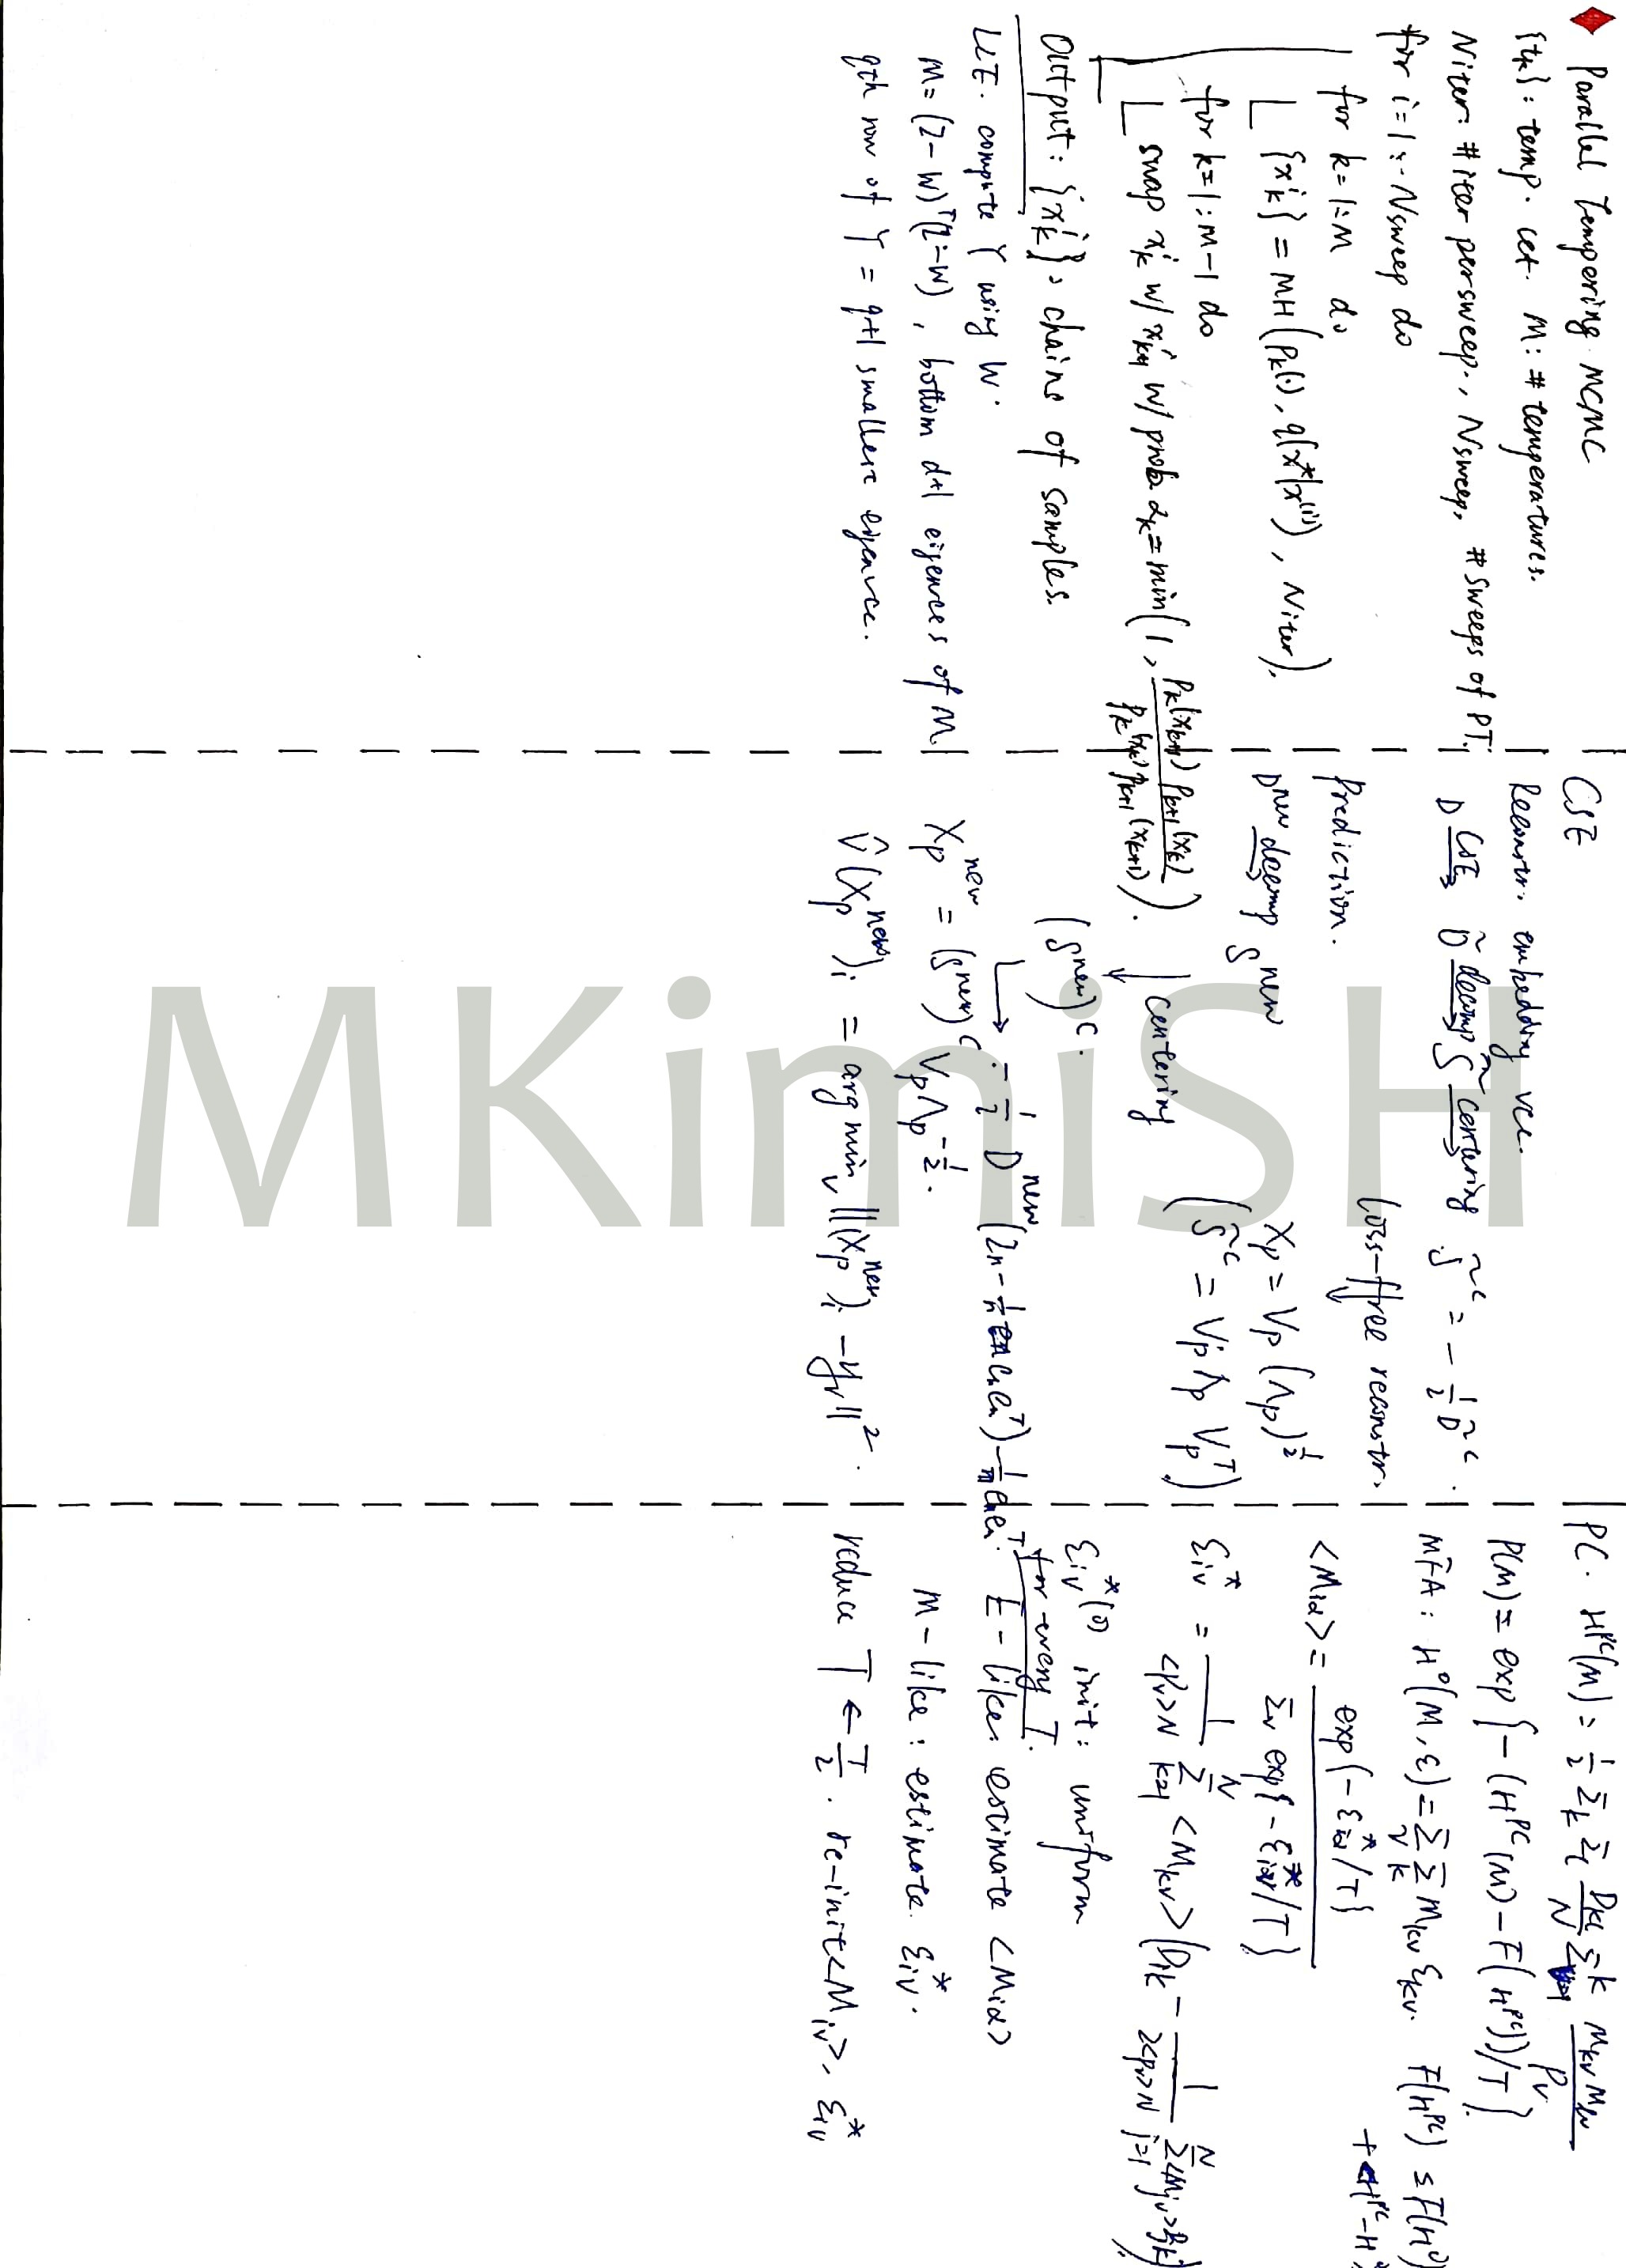 Parallel Tempering MCMC
{t_k}: temp. set. M: # temperatures.
Niter: # iter per sweep., Nsweep, # sweeps of PT.
for i=1:Nsweep do
for k=1:M do
{x_k^i} = MH(p_k(·), q(x*|x^(i)), Niter),
for k=1:M-1 do
swap x_k^i w/ x_{k+1}^i w/ prob. α_k = min(1, p_k(x_{k+1}) p_{k+1}(x_k) / p_k(x_k) p_{k+1}(x_{k+1})).
Output: {x_k^i}: chains of samples.
LLE. compute Y using W.
M = (I-W)^T(I-W), bottom d+1 eigenvecs of M
qth row of Y = q+1 smallest eigenvec.
CSE
Reconstr. embedding vec.
D →CSE D̃ →decomp S̃ →centering S̃^c = -1/2 D̃^c.
loss-free reconstr.
Prediction.
X_p = V_p (Λ_p)^{1/2}
D^new →decomp S^new
(S̃^c = V_p Λ_p V_p^T)
centering
(S^new)^c.
= -1/2 D^new (I_n - 1/n e_n e_n^T) - 1/n e_n e_n^T.
X_p^new = (S^new)^c V_p Λ_p^{-1/2}.
v̂(X_p^new)_i = arg min_v ||(X_p^new)_i - y_v||^2.
PC. H^PC(M) = 1/2 Σ_k Σ_l D_kl/N Σ_{v=1}^k M_kv M_lv / P_v
P(M) = exp{-(H^PC(M) - F(H^PC))/T}.
MFA: H^0(M, ε) = Σ_v Σ_k M_kv ε_kv. F(H^PC) ≤ F(H^0)
+ <H^PC - H^0
<M_iα> = exp{-ε*_iα/T} / Σ_v exp{-ε*_iv/T}
ε*_iv = 1/(<P_v>N) Σ_{k=1}^N <M_kv> (D_ik - 1/(2<P_v>N) Σ_{j=1}^N <M_jv> D_jk).
ε*_iv^(0) init: uniform
for every T.
E-like: estimate <M_iα>
M-like: estimate ε*_iv.
reduce T ← T/2. re-init <M_iv>, ε*_iv
MKimiSH